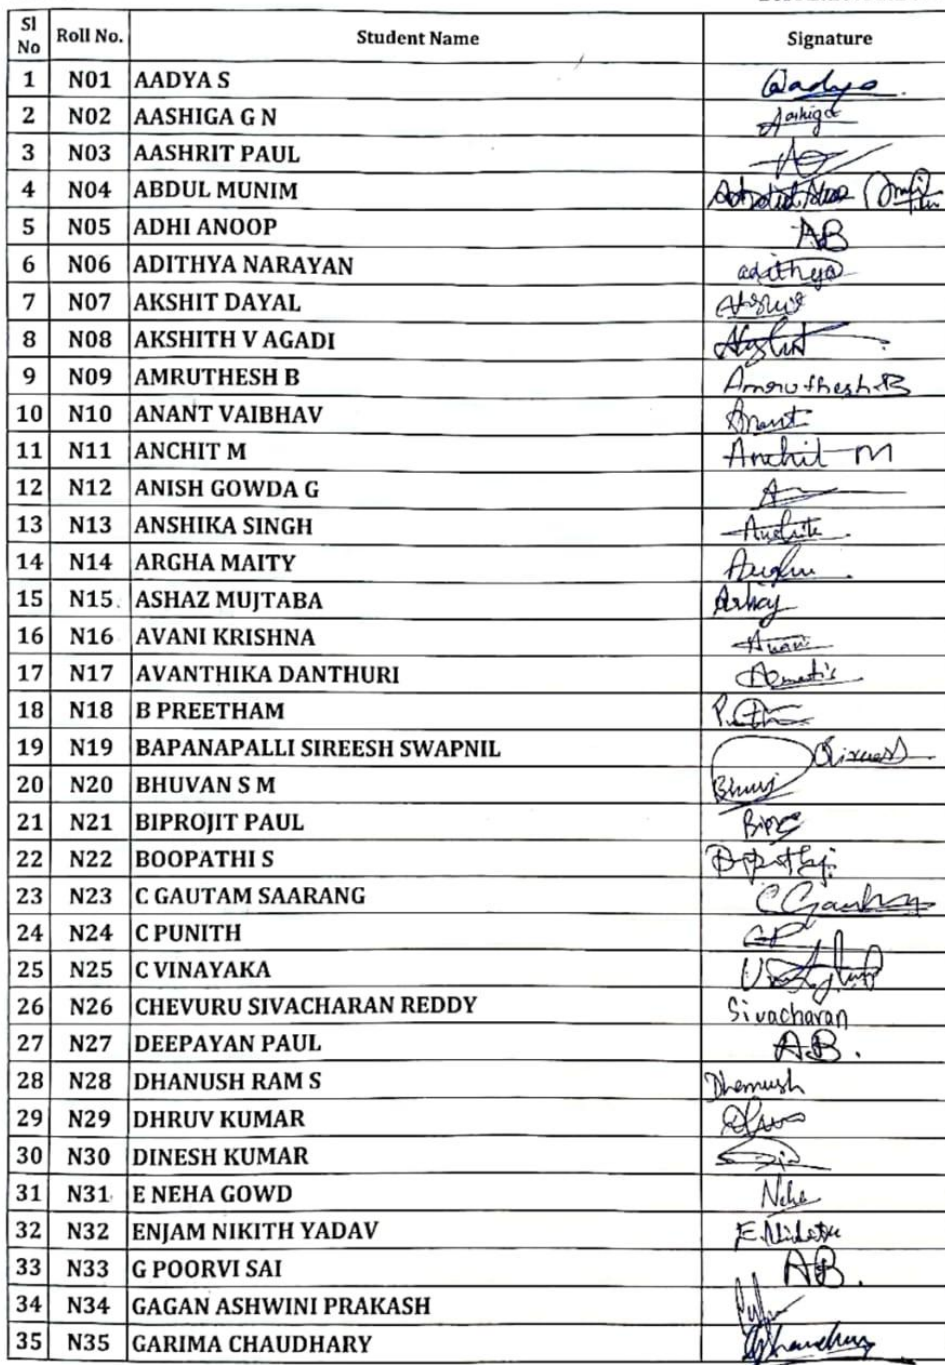 Sl No Roll No. Student Name Signature
1 N01 AADYA S Aadya
2 N02 AASHIGA G N Aashiga
3 N03 AASHRIT PAUL
4 N04 ABDUL MUNIM
5 N05 ADHI ANOOP AB
6 N06 ADITHYA NARAYAN adithya
7 N07 AKSHIT DAYAL
8 N08 AKSHITH V AGADI
9 N09 AMRUTHESH B Amruthesh.B
10 N10 ANANT VAIBHAV Anant
11 N11 ANCHIT M Anchit M
12 N12 ANISH GOWDA G
13 N13 ANSHIKA SINGH
14 N14 ARGHA MAITY
15 N15 ASHAZ MUJTABA
16 N16 AVANI KRISHNA Avani
17 N17 AVANTHIKA DANTHURI
18 N18 B PREETHAM
19 N19 BAPANAPALLI SIREESH SWAPNIL
20 N20 BHUVAN S M
21 N21 BIPROJIT PAUL
22 N22 BOOPATHI S
23 N23 C GAUTAM SAARANG
24 N24 C PUNITH CP
25 N25 C VINAYAKA
26 N26 CHEVURU SIVACHARAN REDDY Sivacharan
27 N27 DEEPAYAN PAUL AB.
28 N28 DHANUSH RAM S Dhanush
29 N29 DHRUV KUMAR
30 N30 DINESH KUMAR
31 N31 E NEHA GOWD Neha
32 N32 ENJAM NIKITH YADAV
33 N33 G POORVI SAI AB.
34 N34 GAGAN ASHWINI PRAKASH
35 N35 GARIMA CHAUDHARY